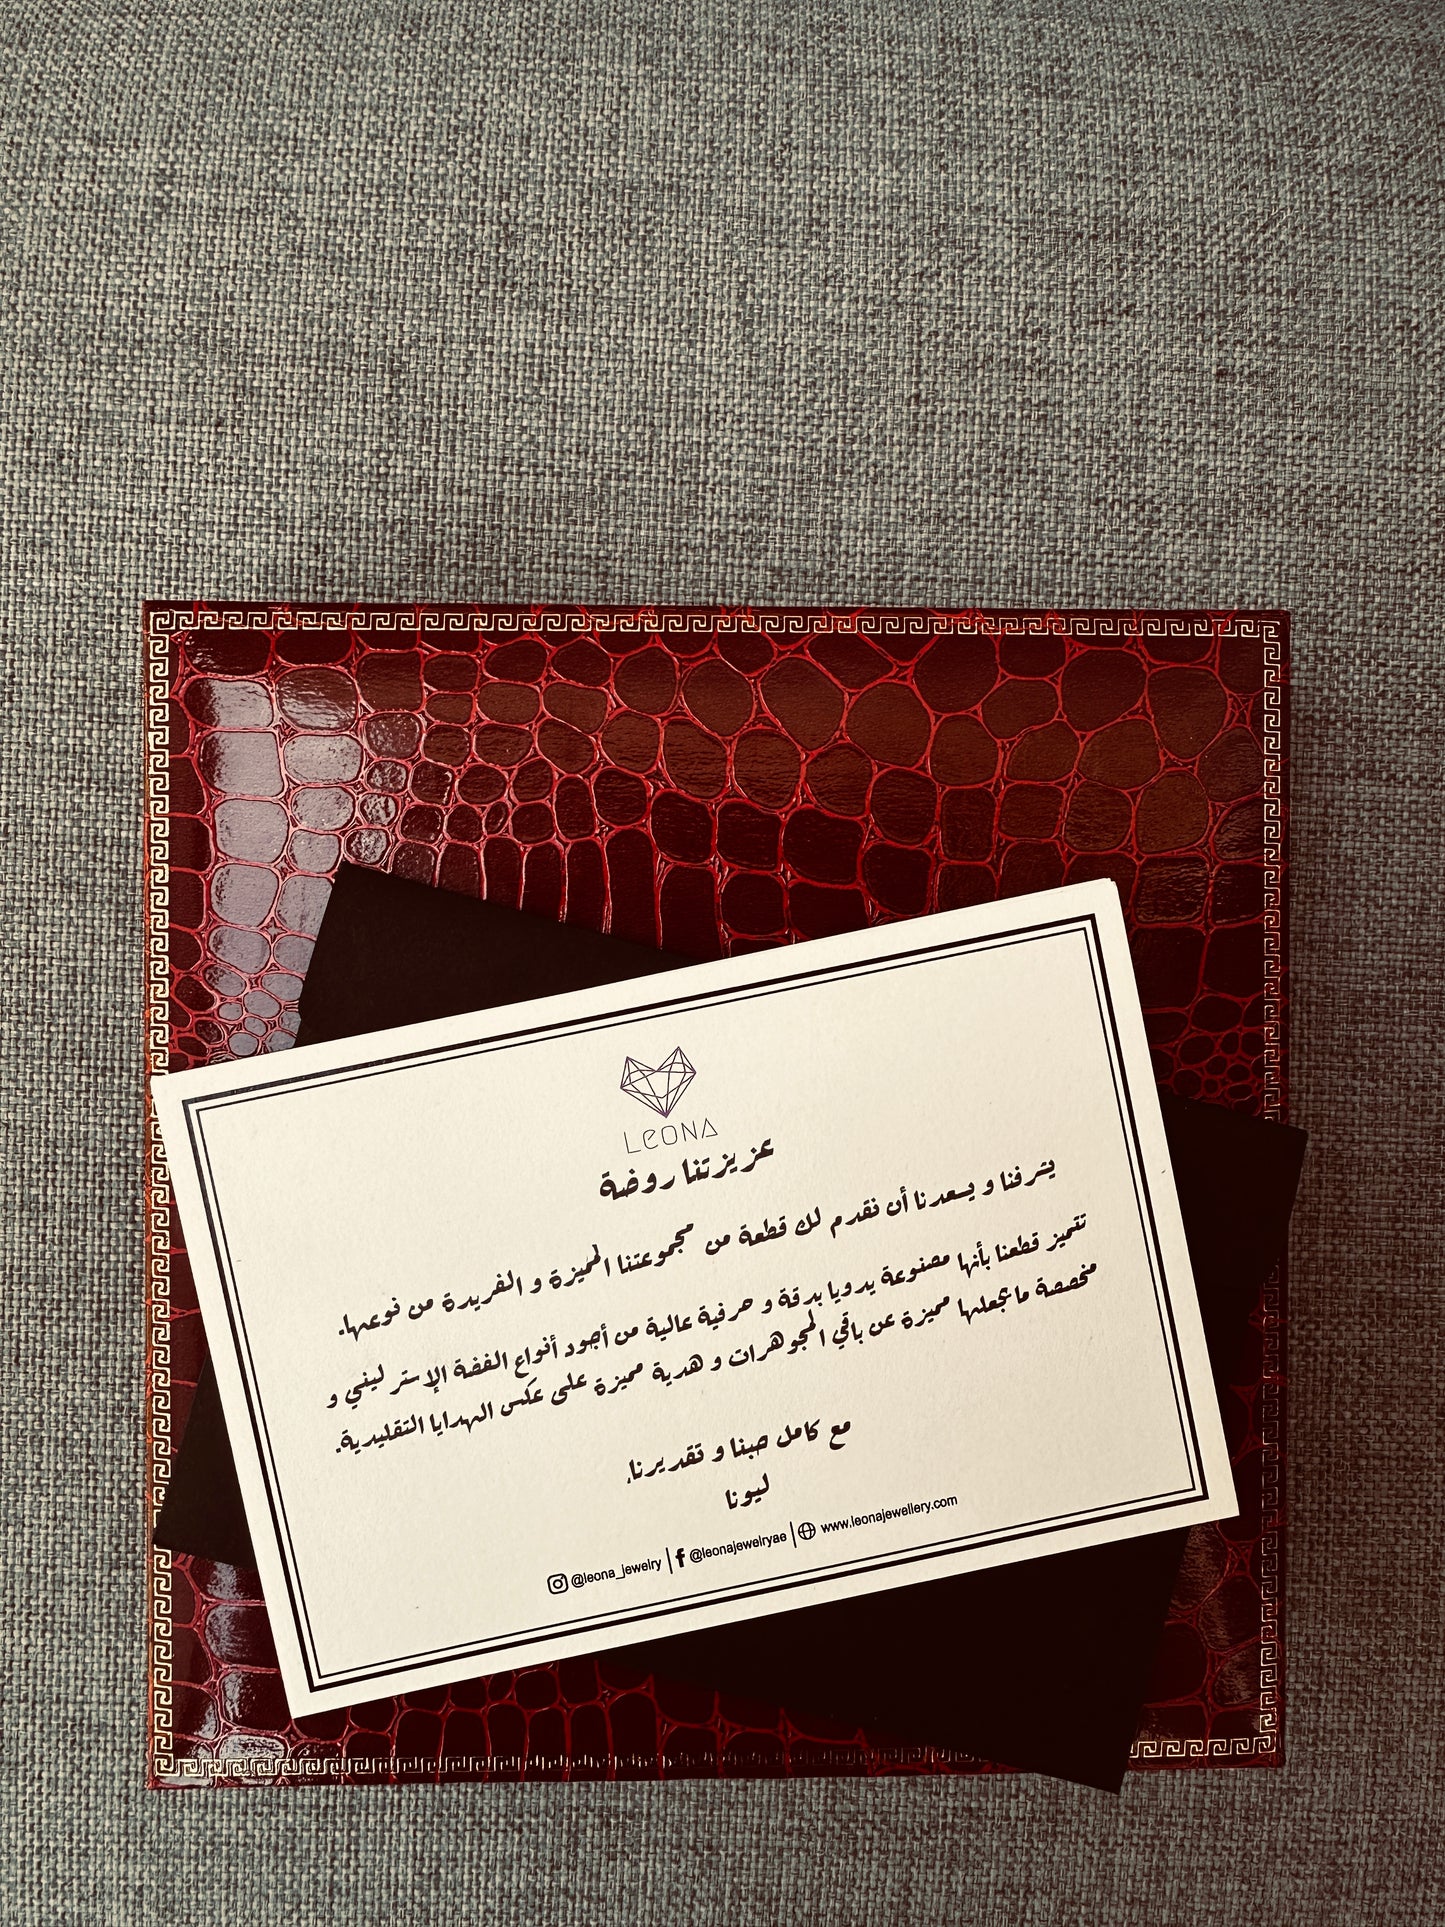 LEONA
عزيزتنا روضة
يشرفنا و يسعدنا أن نقدم لك قطعة من مجموعتنا المميزة و الفريدة من نوعها.
تتميز قطعنا بأنها مصنوعة يدويا بدقة و حرفية عالية من أجود أنواع الفضة الإسترليني و
مخصصة ما يجعلها مميزة عن باقي المجوهرات و هدية مميزة على عكس الهدايا التقليدية.
مع كامل حبنا و تقديرنا,
ليونا
@leona_jewelry | @leonajewelryae | www.leonajewellery.com